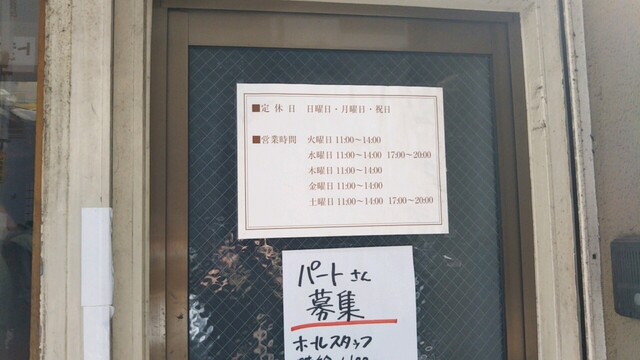 ■定 休 日 日曜日・月曜日・祝日
■営業時間 火曜日 11:00～14:00
水曜日 11:00～14:00 17:00～20:00
木曜日 11:00～14:00
金曜日 11:00～14:00
土曜日 11:00～14:00 17:00～20:00
パートさん
募集
ホールスタッフ